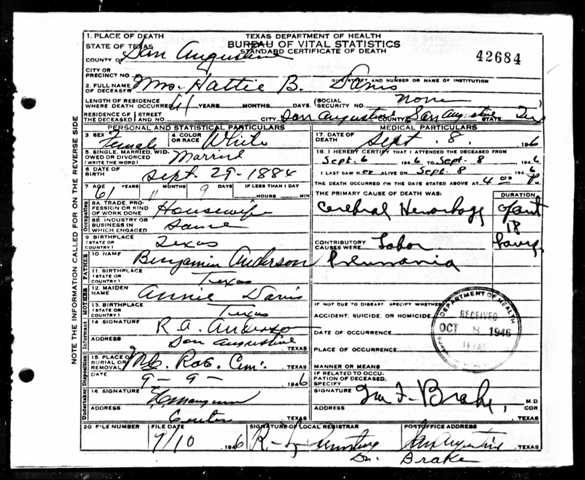 TEXAS DEPARTMENT OF HEALTH
BUREAU OF VITAL STATISTICS
STANDARD CERTIFICATE OF DEATH
42684
1. PLACE OF DEATH
STATE OF TEXAS
COUNTY OF San Augustine
CITY OR PRECINCT NO.
2. FULL NAME OF DECEASED Mrs. Hattie B. Davis
STREET AND NUMBER OR NAME OF INSTITUTION
LENGTH OF RESIDENCE WHERE DEATH OCCURRED 61 YEARS MONTHS DAYS (SOCIAL SECURITY NO. none
RESIDENCE OF THE DECEASED STREET AND NO. CITY San Augustine COUNTY San Augustine STATE Tex
PERSONAL AND STATISTICAL PARTICULARS
3. SEX Female
4. COLOR OR RACE White
5. SINGLE, MARRIED, WIDOWED OR DIVORCED (WRITE THE WORD) Married
6. DATE OF BIRTH Sept. 29-1884
7. AGE YEARS MONTHS DAYS IF LESS THAN 1 DAY
61 11 9 HOURS MIN
8A. TRADE, PROFESSION OR KIND OF WORK DONE Housewife
8B. INDUSTRY OR BUSINESS IN WHICH ENGAGED Same
9. BIRTHPLACE (STATE OR COUNTRY) Texas
10. NAME Benjamin Anderson
11. BIRTHPLACE (STATE OR COUNTRY) Texas
12. MAIDEN NAME Annie Davis
13. BIRTHPLACE (STATE OR COUNTRY) Texas
14. SIGNATURE R. A. Anderson
ADDRESS San Augustine TEXAS
15. PLACE OF BURIAL OR REMOVAL Cem. TEXAS
DATE 9-9- 1946
16. SIGNATURE
ADDRESS Center TEXAS
MEDICAL PARTICULARS
17. DATE OF DEATH Sept. 8 1946
18. I HEREBY CERTIFY THAT I ATTENDED THE DECEASED FROM
Sept. 6 1946 TO Sept. 8 1946
I LAST SAW ALIVE ON Sept. 8 1946
THE DEATH OCCURRED ON THE DATE STATED ABOVE AT 4 M.
THE PRIMARY CAUSE OF DEATH WAS: DURATION
Cerebral Hemorhagg 18
CONTRIBUTORY CAUSES WERE: Lobar
Pneumonia
IF NOT DUE TO DISEASE, SPECIFY WHETHER:
ACCIDENT, SUICIDE, OR HOMICIDE
DATE OF OCCURRENCE
PLACE OF OCCURRENCE
MANNER OR MEANS
IF RELATED TO OCCUPATION OF DECEASED, SPECIFY
SIGNATURE Brake, M D
ADDRESS TEXAS
DEPARTMENT OF HEALTH
RECEIVED
OCT 1946
TEXAS
20. FILE NUMBER FILE DATE SIGNATURE OF LOCAL REGISTRAR POSTOFFICE ADDRESS
9/10 1946 San Augustine TEXAS
Dr. Brake
NOTE THE INFORMATION CALLED FOR ON THE REVERSE SIDE
FATHER
MOTHER